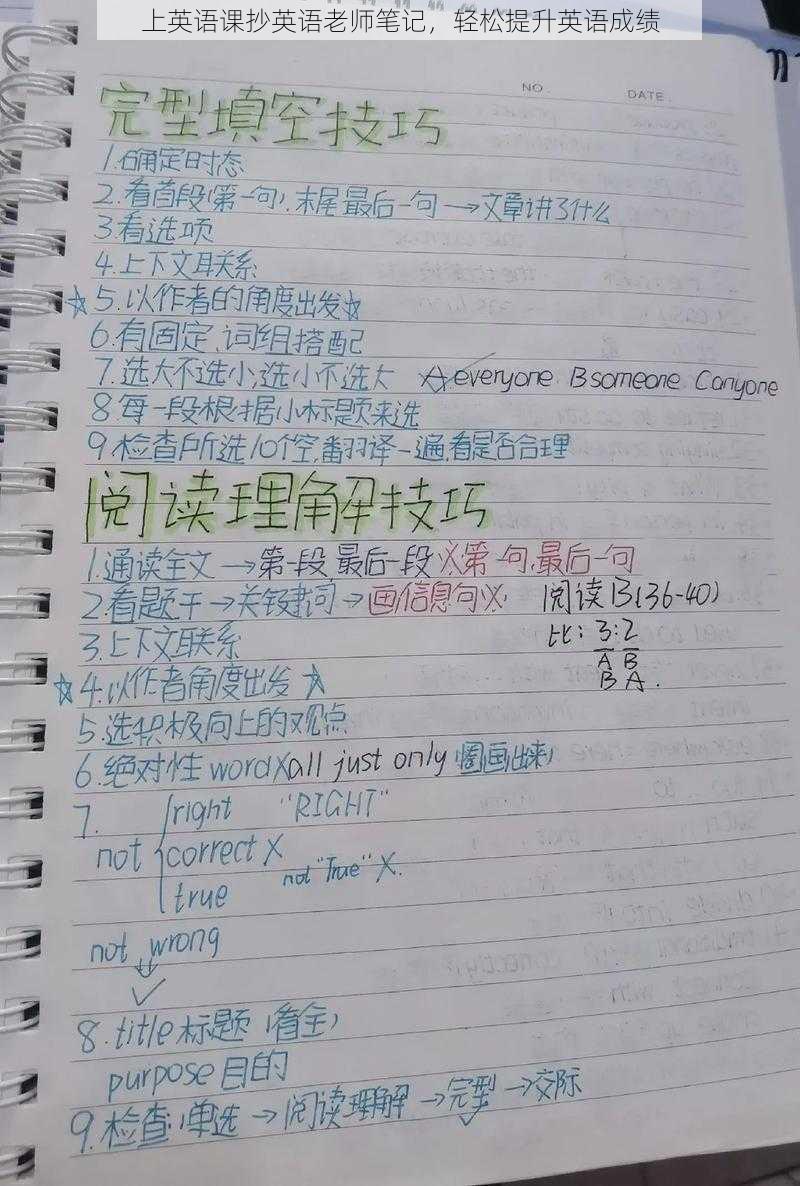 上英语课抄英语老师笔记，轻松提升英语成绩
NO.
DATE.
完型填空技巧
1.确定时态
2.看首段(第一句),末尾最后一句→文章讲了什么
3看选项
4.上下文联系
☆5.以作者的角度出发☆
6.有固定、词组搭配
7.选大不选小,选小不选大 A everyone B someone C anyone
8.每一段根据小标题来选
9.检查所选10个空,翻译一遍,看是否合理
阅读理解技巧
1.通读全文→第一段,最后一段※第一句,最后一句
2看题干→关键词→画信息句※
阅读B(36-40)
3.上下文联系
比: 3:2
A B
B A.
☆4.以作者角度出发☆
5.选积极向上的观点
6.绝对性word X all just only (圈画出来)
7. right "RIGHT"
not correct X
not "True" X.
true
not wrong
✓
8.title标题(看全)
purpose目的
9.检查:单选→阅读理解→完型→交际